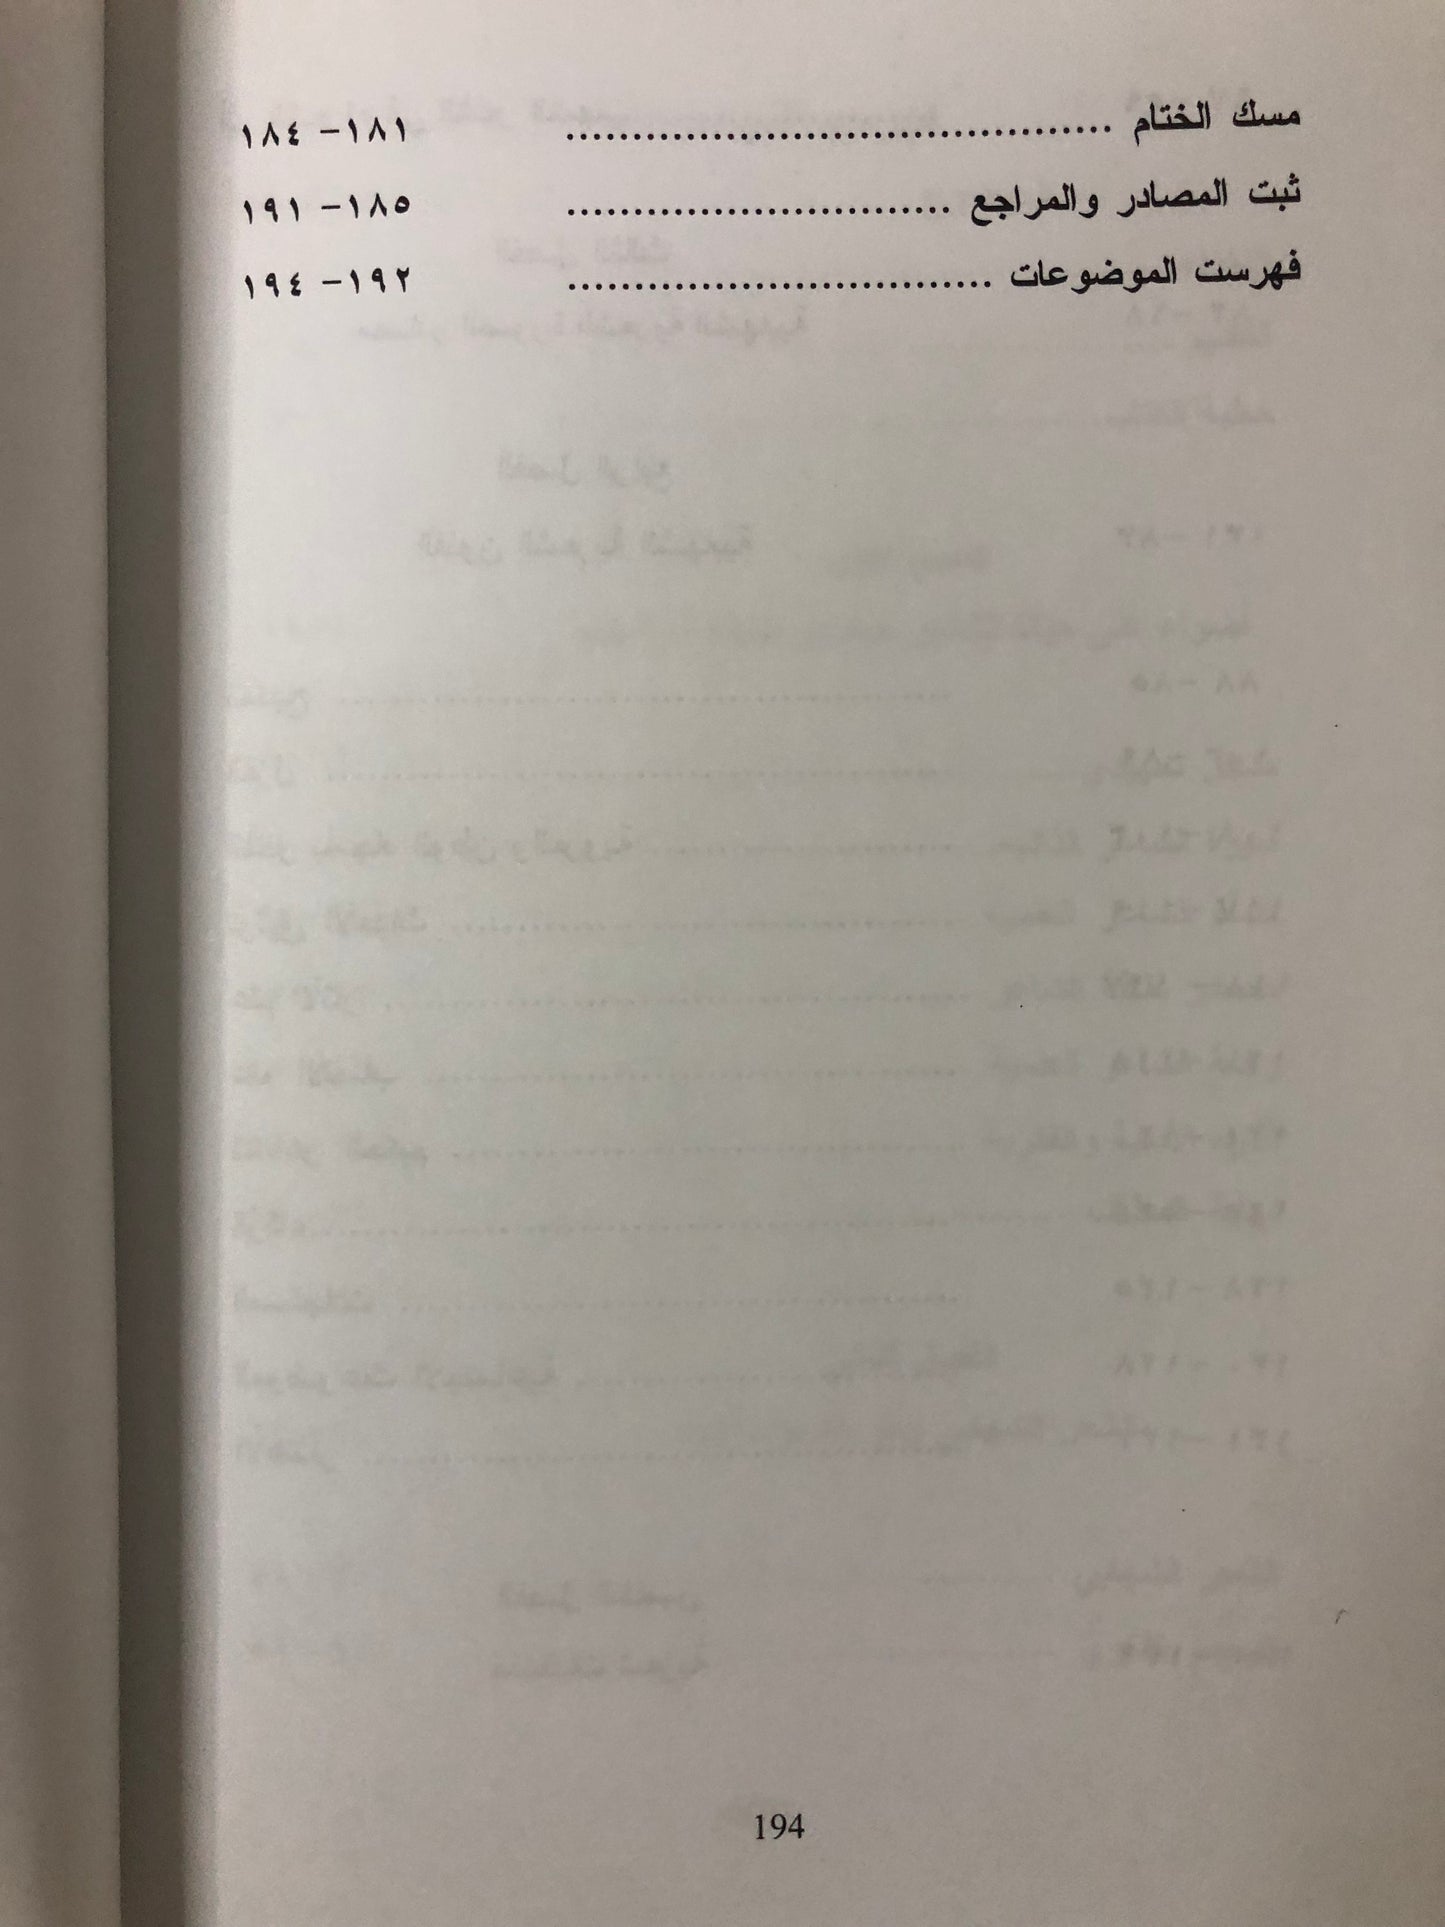 مسك الختام .......................................... ١٨١– ١٨٤
ثبت المصادر والمراجع ............................. ١٨٥– ١٩١
فهرست الموضوعات ................................ ١٩٢– ١٩٤
194